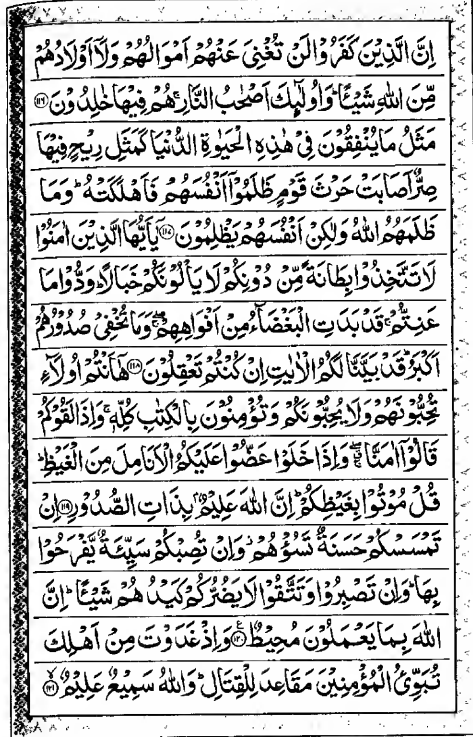 اِنَّ الَّذِيْنَ كَفَرُوْا لَنْ تُغْنِيَ عَنْهُمْ اَمْوَالُهُمْ وَلَآ اَوْلَادُهُمْ
مِّنَ اللّٰهِ شَيْـًٔا ؕ وَاُولٰٓئِكَ اَصْحٰبُ النَّارِ ۚ هُمْ فِيْهَا خٰلِدُوْنَ ﴿۱۱۶﴾
مَثَلُ مَا يُنْفِقُوْنَ فِيْ هٰذِهِ الْحَيٰوةِ الدُّنْيَا كَمَثَلِ رِيْحٍ فِيْهَا
صِرٌّ اَصَابَتْ حَرْثَ قَوْمٍ ظَلَمُوْٓا اَنْفُسَهُمْ فَاَهْلَكَتْهُ ؕ وَمَا
ظَلَمَهُمُ اللّٰهُ وَلٰكِنْ اَنْفُسَهُمْ يَظْلِمُوْنَ ﴿۱۱۷﴾ يٰٓاَيُّهَا الَّذِيْنَ اٰمَنُوْا
لَا تَتَّخِذُوْا بِطَانَةً مِّنْ دُوْنِكُمْ لَا يَاْلُوْنَكُمْ خَبَالًا ؕ وَدُّوْا مَا
عَنِتُّمْ ۚ قَدْ بَدَتِ الْبَغْضَآءُ مِنْ اَفْوَاهِهِمْ ۖۚ وَمَا تُخْفِيْ صُدُوْرُهُمْ
اَكْبَرُ ؕ قَدْ بَيَّنَّا لَكُمُ الْاٰيٰتِ اِنْ كُنْتُمْ تَعْقِلُوْنَ ﴿۱۱۸﴾ هٰٓاَنْتُمْ اُولَآءِ
تُحِبُّوْنَهُمْ وَلَا يُحِبُّوْنَكُمْ وَتُؤْمِنُوْنَ بِالْكِتٰبِ كُلِّهٖ ۚ وَاِذَا لَقُوْكُمْ
قَالُوْٓا اٰمَنَّا ۖۚ وَاِذَا خَلَوْا عَضُّوْا عَلَيْكُمُ الْاَنَامِلَ مِنَ الْغَيْظِ ؕ
قُلْ مُوْتُوْا بِغَيْظِكُمْ ؕ اِنَّ اللّٰهَ عَلِيْمٌۢ بِذَاتِ الصُّدُوْرِ ﴿۱۱۹﴾ اِنْ
تَمْسَسْكُمْ حَسَنَةٌ تَسُؤْهُمْ ۫ وَاِنْ تُصِبْكُمْ سَيِّئَةٌ يَّفْرَحُوْا
بِهَا ؕ وَاِنْ تَصْبِرُوْا وَتَتَّقُوْا لَا يَضُرُّكُمْ كَيْدُهُمْ شَيْـًٔا ؕ اِنَّ
اللّٰهَ بِمَا يَعْمَلُوْنَ مُحِيْطٌ ﴿۱۲۰﴾ ع وَاِذْ غَدَوْتَ مِنْ اَهْلِكَ
تُبَوِّئُ الْمُؤْمِنِيْنَ مَقَاعِدَ لِلْقِتَالِ ؕ وَاللّٰهُ سَمِيْعٌ عَلِيْمٌ ﴿۱۲۱﴾ ۙ